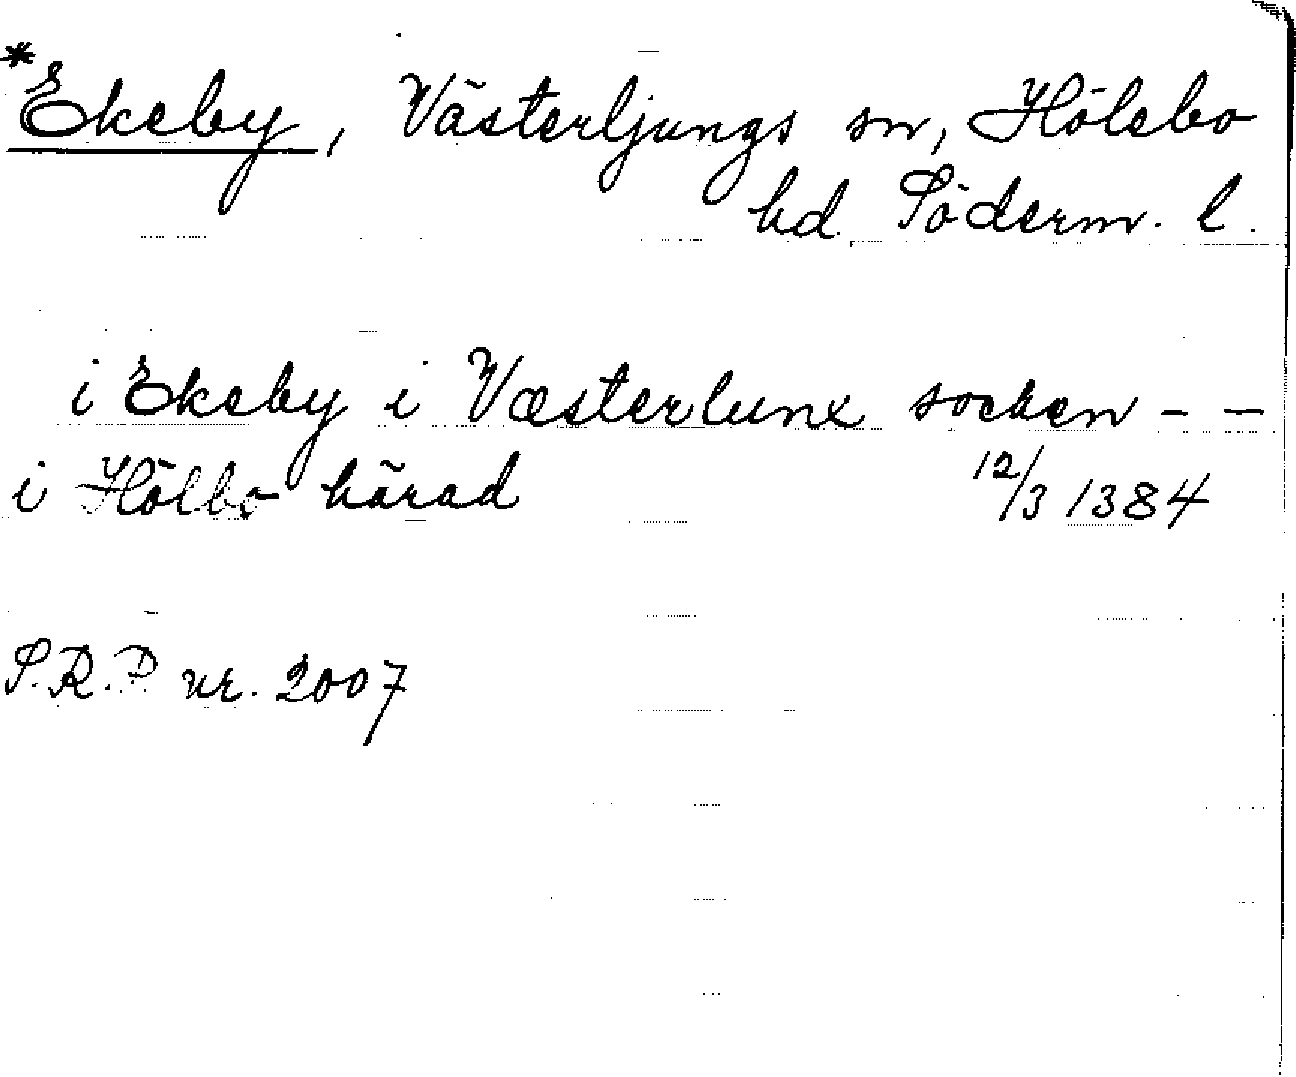 *Ekeby, Västerljungs sn, Hölebo
hd. Söderm. l.
i Ekeby i Væsterlunx socken - -
i Hölbo härad 12/3 1384
S.R.P. nr. 2007